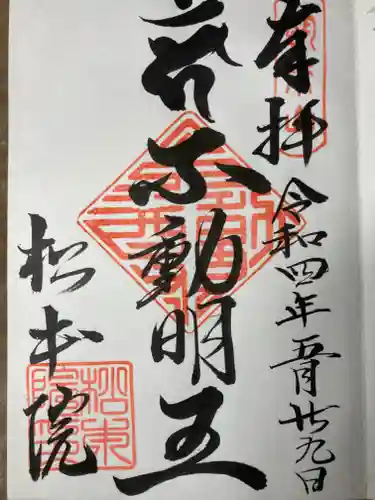 奉拝
令和四年五月廿九日
苔不動明王
松本院